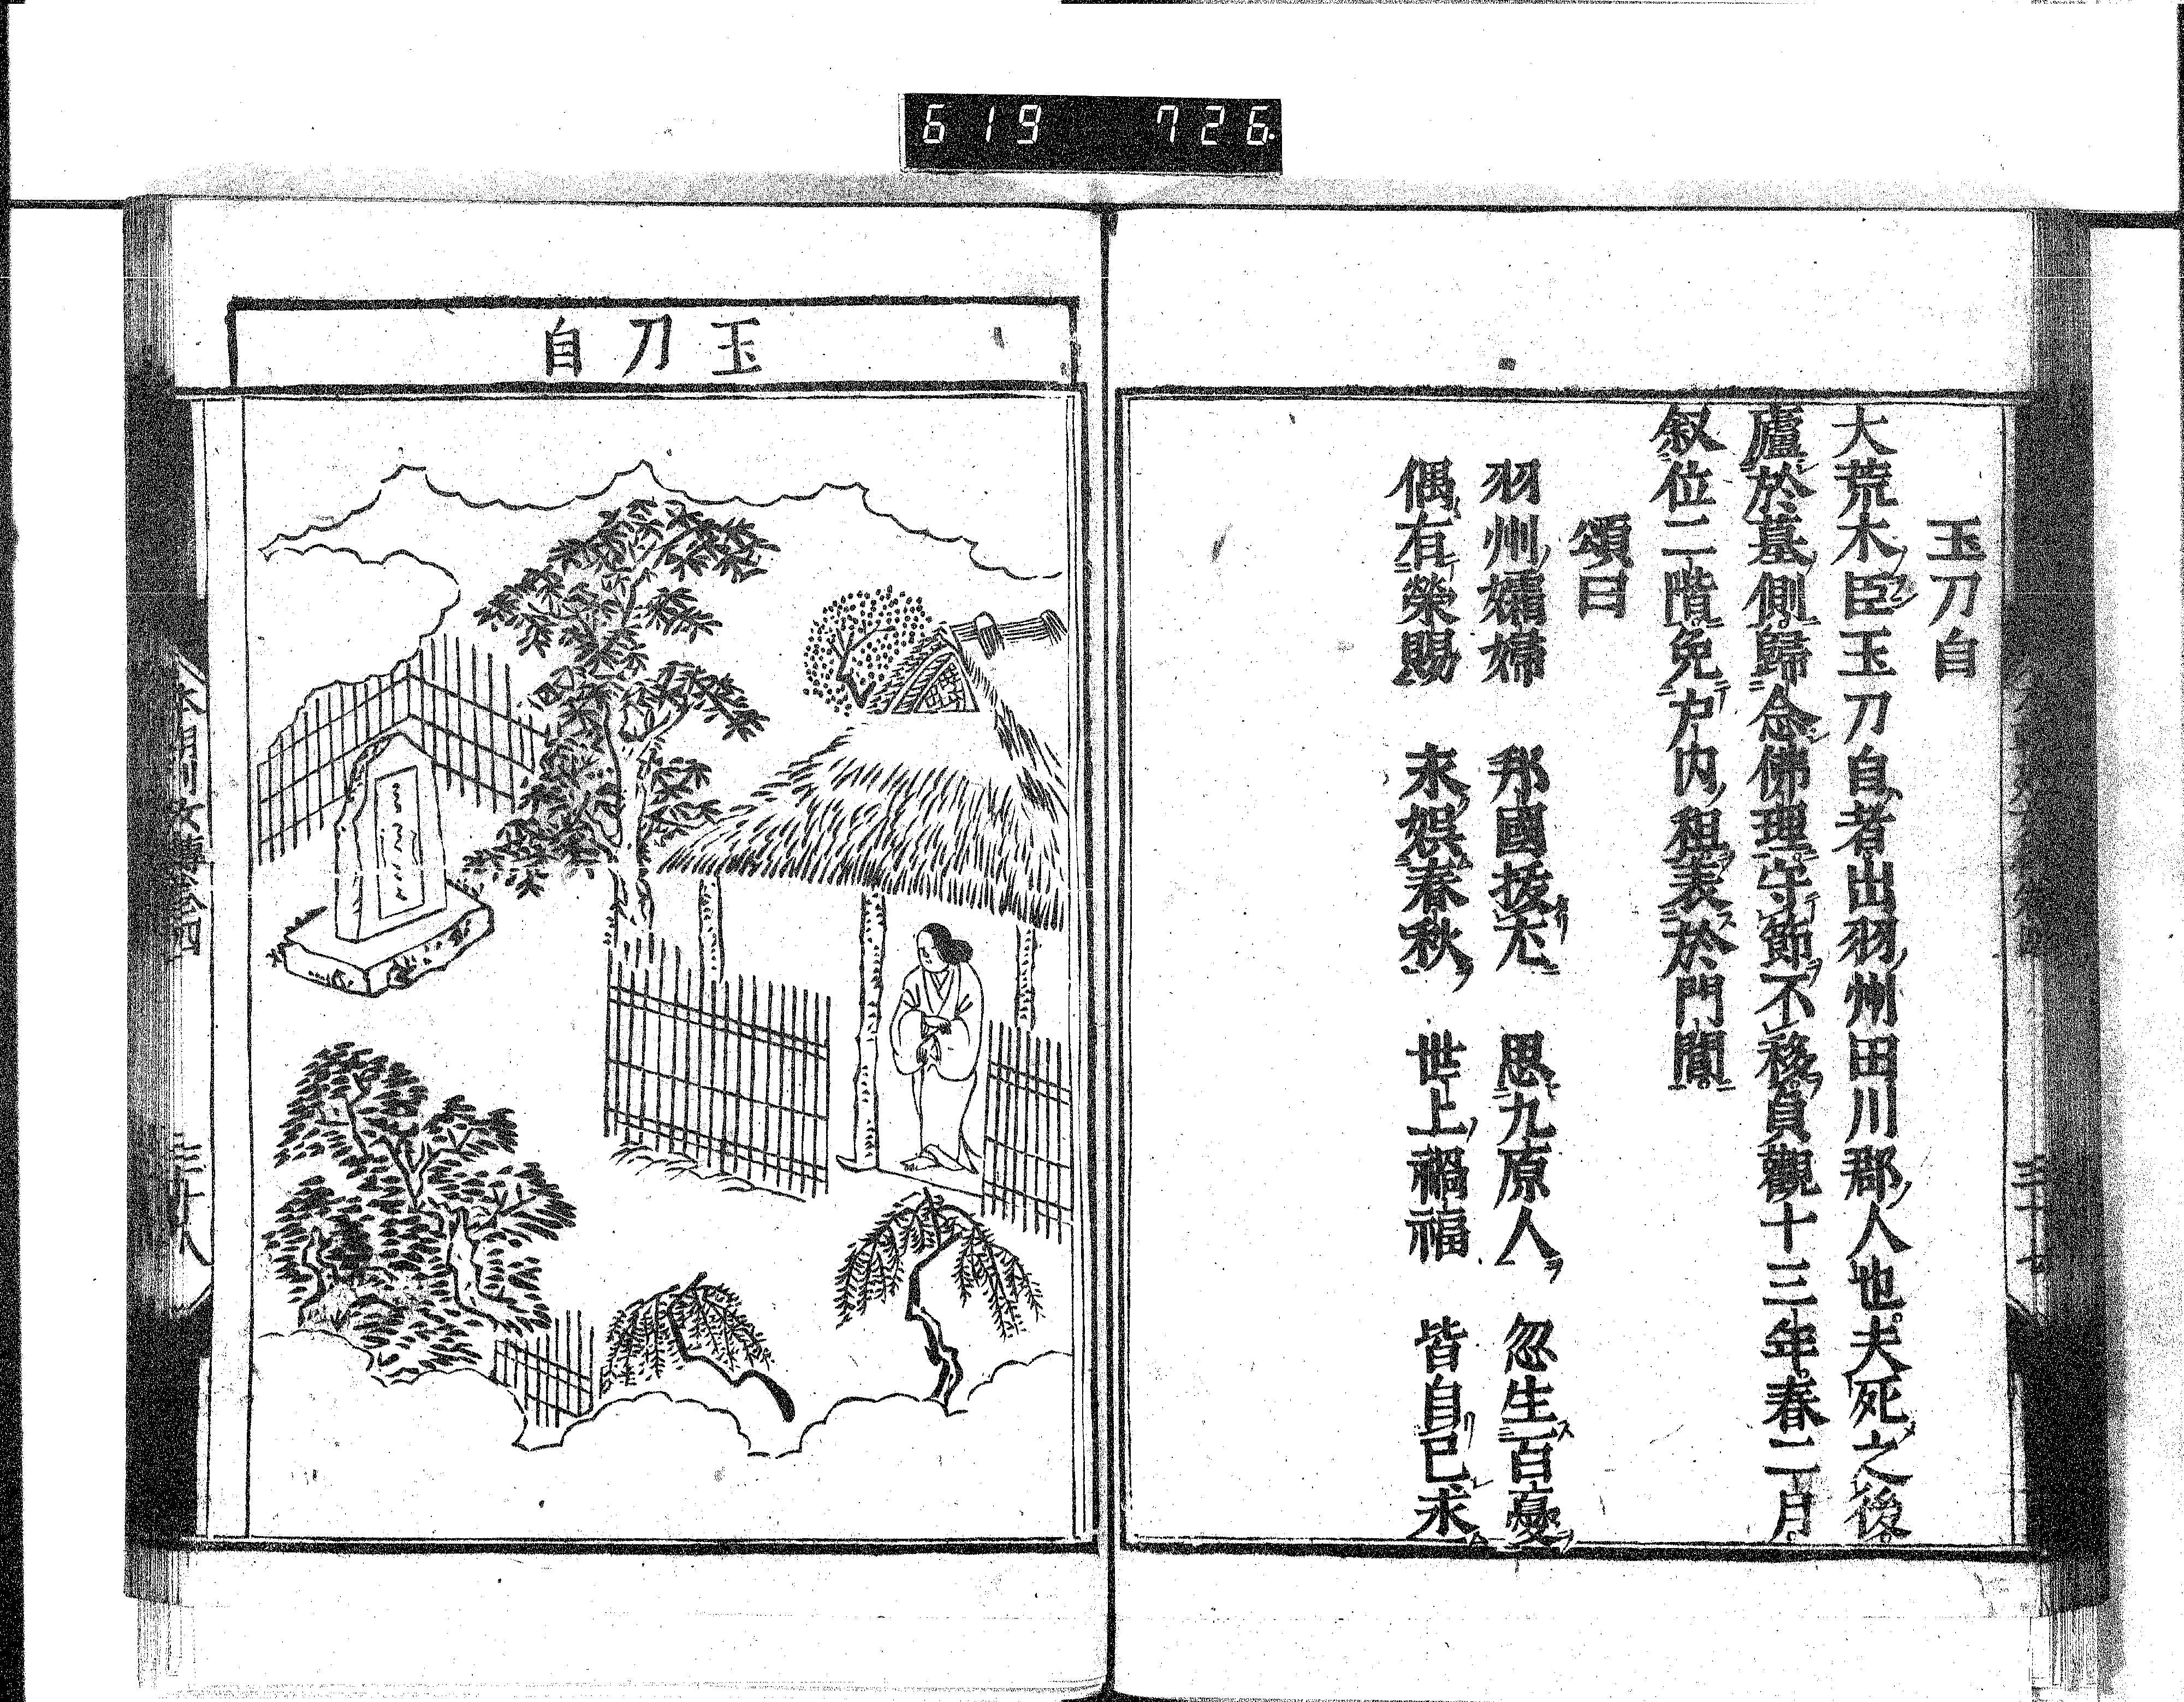 619 726
玉刀自
大荒木臣玉刀自者出羽州田川郡人也夫死之後
廬於墓側歸念佛理守節不移貞觀十三年春二月
叙位二階免戸内租表於門閭
頌曰
羽州孀婦 邦國拔尤 思九原人 忽生百憂
偶有榮賜 永娯春秋 世上禍福 皆自己求
三十七
玉刀自
三十八